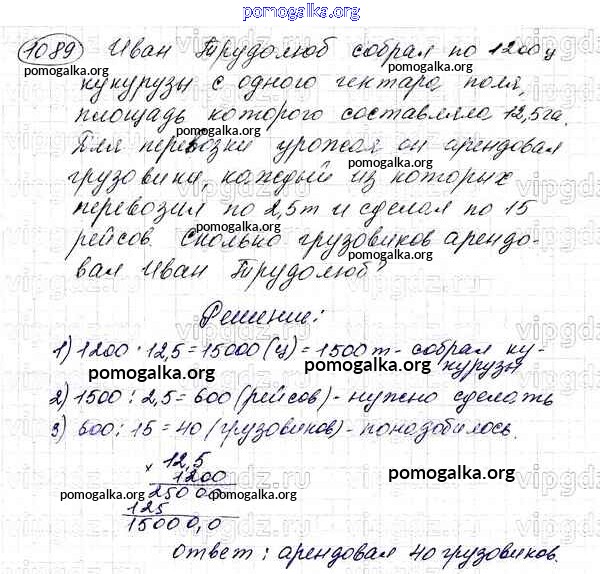 pomogalka.org
1089 Иван Трудолюб собрал по 1200ц
pomogalka.org pomogalka.org
кукурузы с одного гектара поля,
площадь которого составляла 12,5га.
pomogalka.org
Для перевозки урожая он арендовал
pomogalka.org
грузовики, каждый из которых
перевозил по 2,5т и сделал по 15
pomogalka.org
рейсов. Сколько грузовиков арендо-
pomogalka.org
вал Иван Трудолюб?
pomogalka.org
Решение:
1) 1200 · 12,5 = 15000 (ц) = 1500 т - собрал ку-
курузы
pomogalka.org pomogalka.org
2) 1500 : 2,5 = 600 (рейсов) - нужно сделать
3) 600 : 15 = 40 (грузовиков) - понадобилось.
× 12,5
1200
pomogalka.org
25000
pomogalka.org pomogalka.org
125
15000,0
Ответ: арендовал 40 грузовиков.
pomogalka.org